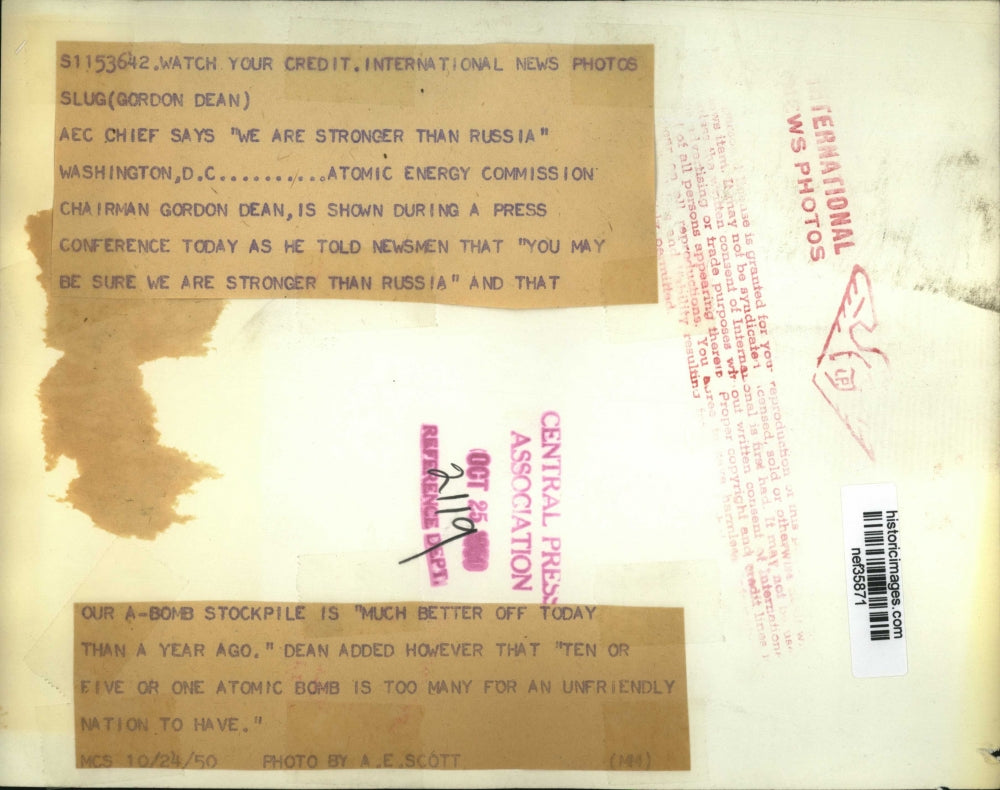 S1153642.WATCH YOUR CREDIT.INTERNATIONAL NEWS PHOTOS
SLUG(GORDON DEAN)
AEC CHIEF SAYS "WE ARE STRONGER THAN RUSSIA"
WASHINGTON,D.C..........ATOMIC ENERGY COMMISSION
CHAIRMAN GORDON DEAN,IS SHOWN DURING A PRESS
CONFERENCE TODAY AS HE TOLD NEWSMEN THAT "YOU MAY
BE SURE WE ARE STRONGER THAN RUSSIA" AND THAT
OUR A-BOMB STOCKPILE IS "MUCH BETTER OFF TODAY
THAN A YEAR AGO." DEAN ADDED HOWEVER THAT "TEN OR
FIVE OR ONE ATOMIC BOMB IS TOO MANY FOR AN UNFRIENDLY
NATION TO HAVE."
MCS 10/24/50 PHOTO BY A.E.SCOTT (MM)
CENTRAL PRESS
ASSOCIATION
OCT 25
REFERENCE DEPT.
2119
INTERNATIONAL
NEWS PHOTOS
is granted for your reproduction
may not be syndicated, licensed, sold or otherwise
consent of International is first had. It may not be
or trade purposes without written consent of International
of all persons appearing therein. Proper copyright and credit lines
reproductions. You agree harmless
resulting
historicimages.com
nef35871